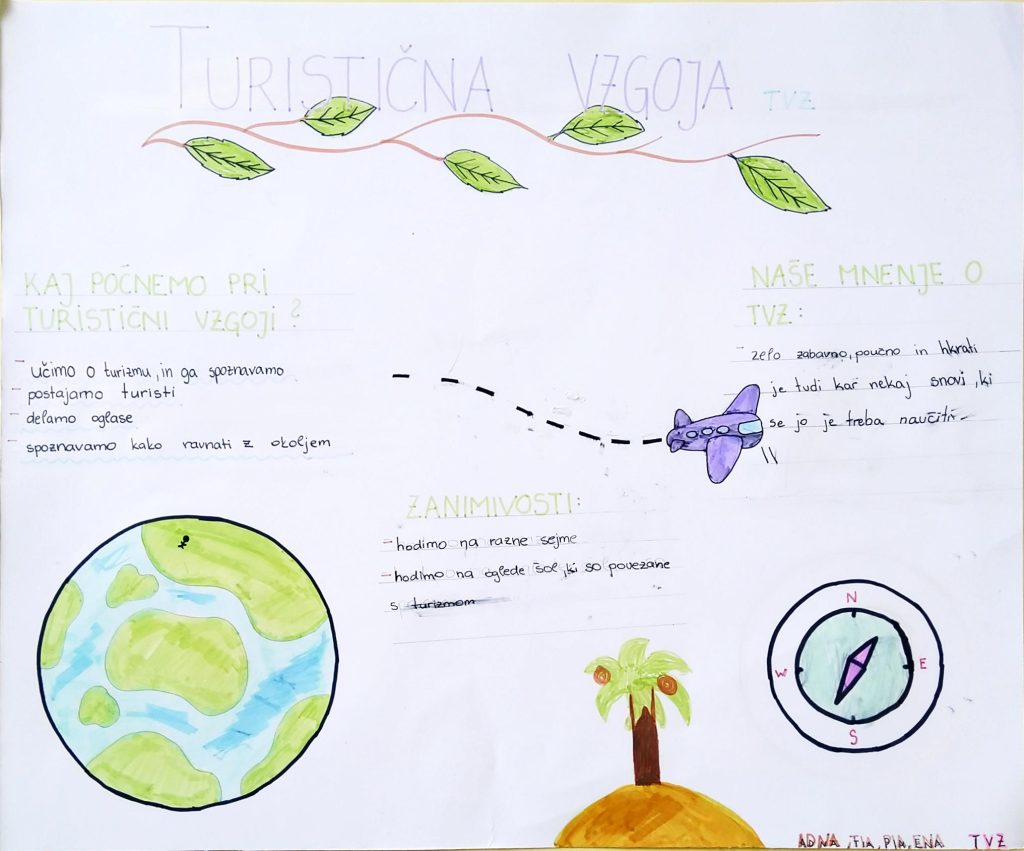 TURISTIČNA VZGOJA TVZ
KAJ POČNEMO PRI
TURISTIČNI VZGOJI ?
- učimo o turizmu, in ga spoznavamo
- postajamo turisti
- delamo oglase
- spoznavamo kako ravnati z okoljem
NAŠE MNENJE O
TVZ:
- zelo zabavno, poučno in hkrati
je tudi kar nekaj snovi, ki
se jo je treba naučiti
ZANIMIVOSTI:
- hodimo na razne sejme
- hodimo na oglede šol, ki so povezane
s turizmom
N
W E
S
ADNA, TIA, PIA, ENA TVZ